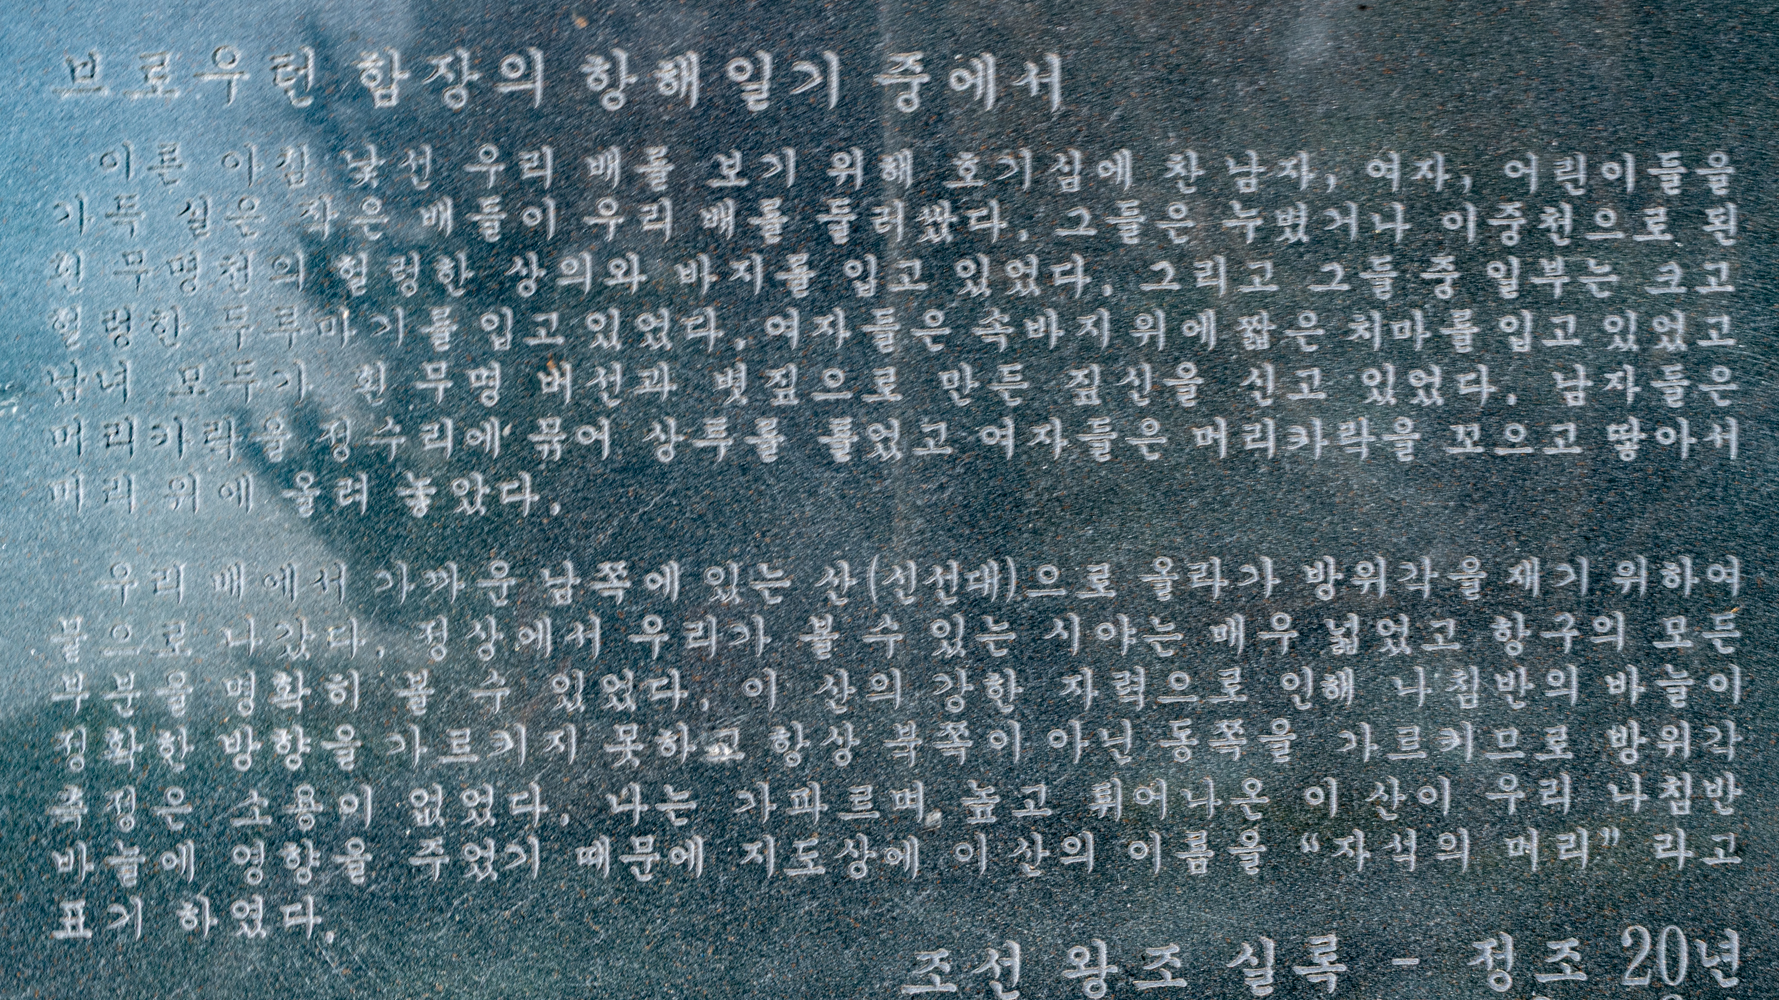 브로우턴 함장의 항해일기 중에서
이른 아침 낯선 우리 배를 보기 위해 호기심에 찬 남자, 여자, 어린이들을
가득 실은 작은 배들이 우리 배를 둘러쌌다. 그들은 누볐거나 이중천으로 된
흰 무명천의 헐렁한 상의와 바지를 입고 있었다. 그리고 그들 중 일부는 크고
헐렁한 두루마기를 입고 있었다. 여자들은 속바지 위에 짧은 처마를 입고 있었고
남녀 모두가 흰 무명 버선과 볏짚으로 만든 짚신을 신고 있었다. 남자들은
머리가락을 정수리에 묶어 상투를 틀었고 여자들은 머리카락을 꼬으고 땋아서
머리 위에 올려 놓았다.
우리 배에서 가까운 남쪽에 있는 산(신선대)으로 올라가 방위각을 재기 위하여
뭍으로 나갔다. 정상에서 우리가 볼 수 있는 시야는 매우 넓었고 항구의 모든
부분을 명확히 볼 수 있었다. 이 산의 강한 자력으로 인해 나침반의 바늘이
정확한 방향을 가르키지 못하고 항상 북쪽이 아닌 동쪽을 가르키므로 방위각
측정은 소용이 없었다. 나는 가파르며, 높고 튀어나온 이 산이 우리 나침반
바늘에 영향을 주었기 때문에 지도상에 이 산의 이름을 “자석의 머리” 라고
표기 하였다.
조선 왕조 실록 - 정조 20년